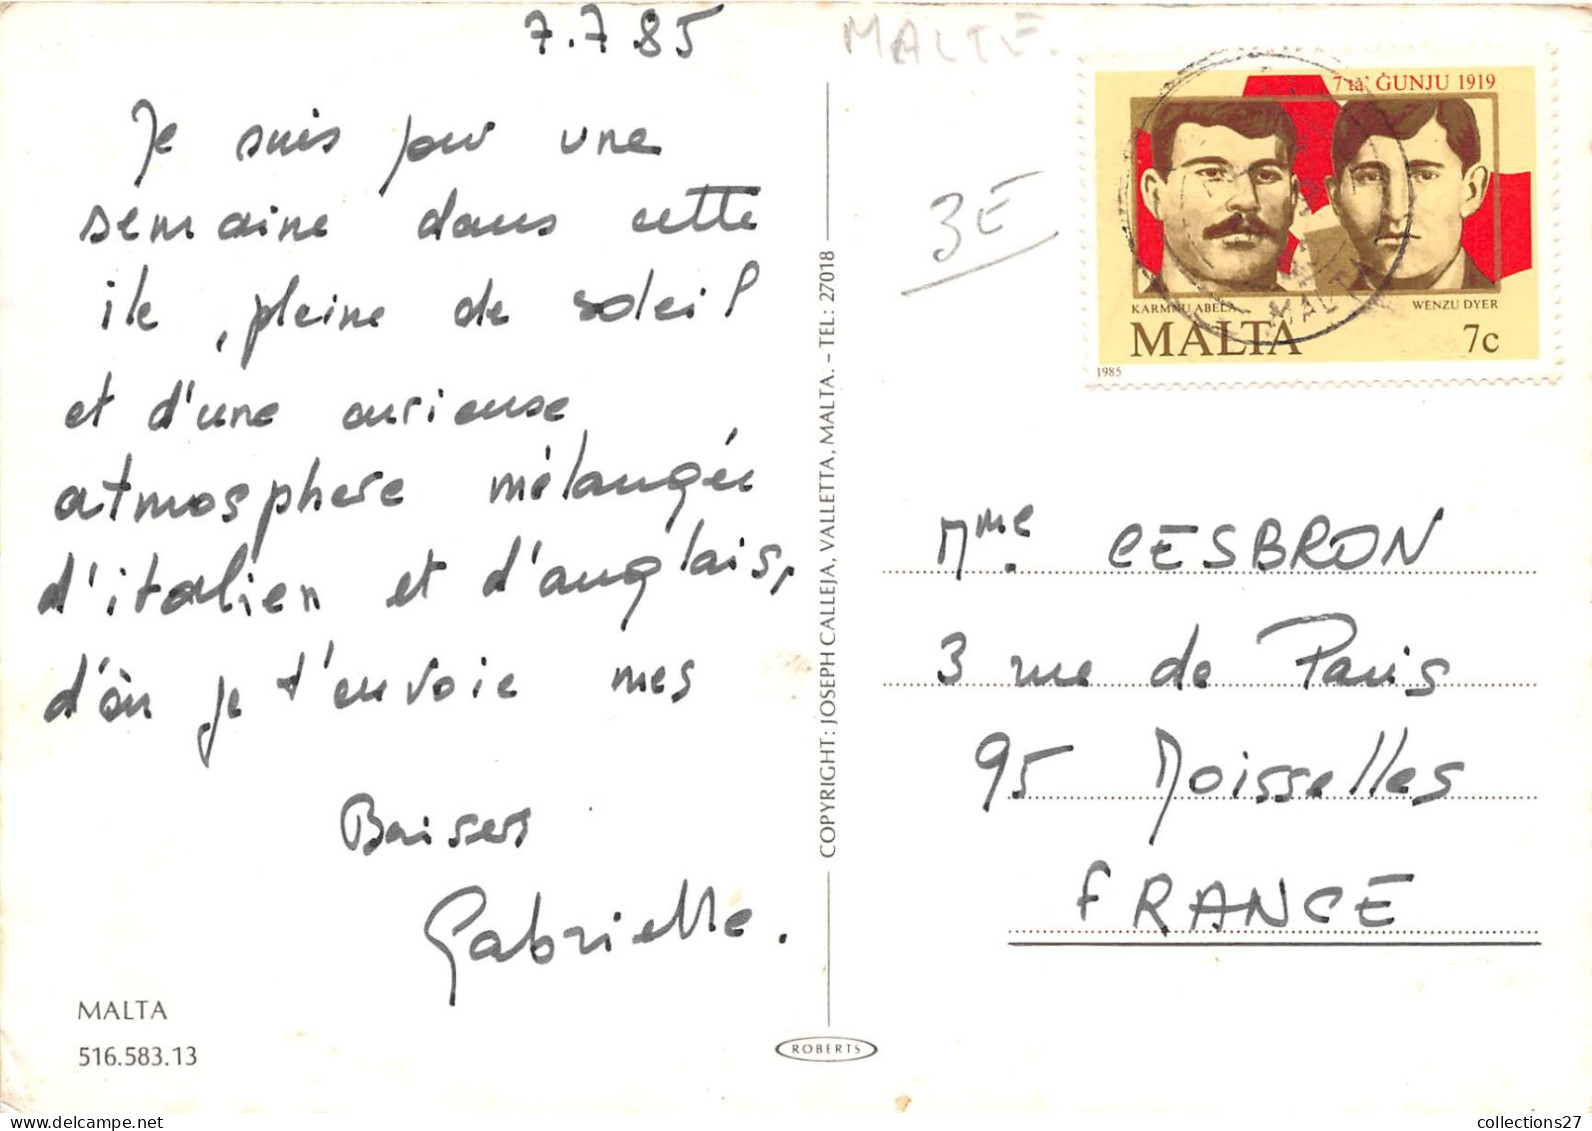 7.7.85
Je suis pour une
semaine dans cette
ile, pleine de soleil
et d'une curieuse
atmosphere mélangée
d'italien et d'anglais,
d'où je t'envoie mes
Baisers
Gabrielle.
MALTA
516.583.13
COPYRIGHT: JOSEPH CALLEJA, VALLETTA, MALTA. – TEL: 27018
ROBERTS
MALTE.
3E
7 ta' ĠUNJU 1919
KARMNU ABELA
WENZU DYER
MALTA 7c
1985
MALTA
Mme. CESBRON
3 rue de Paris
95 Moisselles
FRANCE
collections27